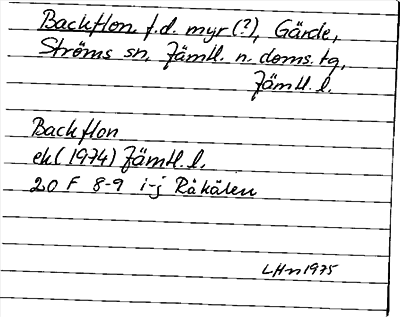 Backflon. f.d. myr (?), Gärde,
Ströms sn, Jämtl. n. doms. tg,
Jämtl. l.
Backflon
ek (1974) Jämtl. l.
20 F 8-9 i-j Råkälen
LHm 1975